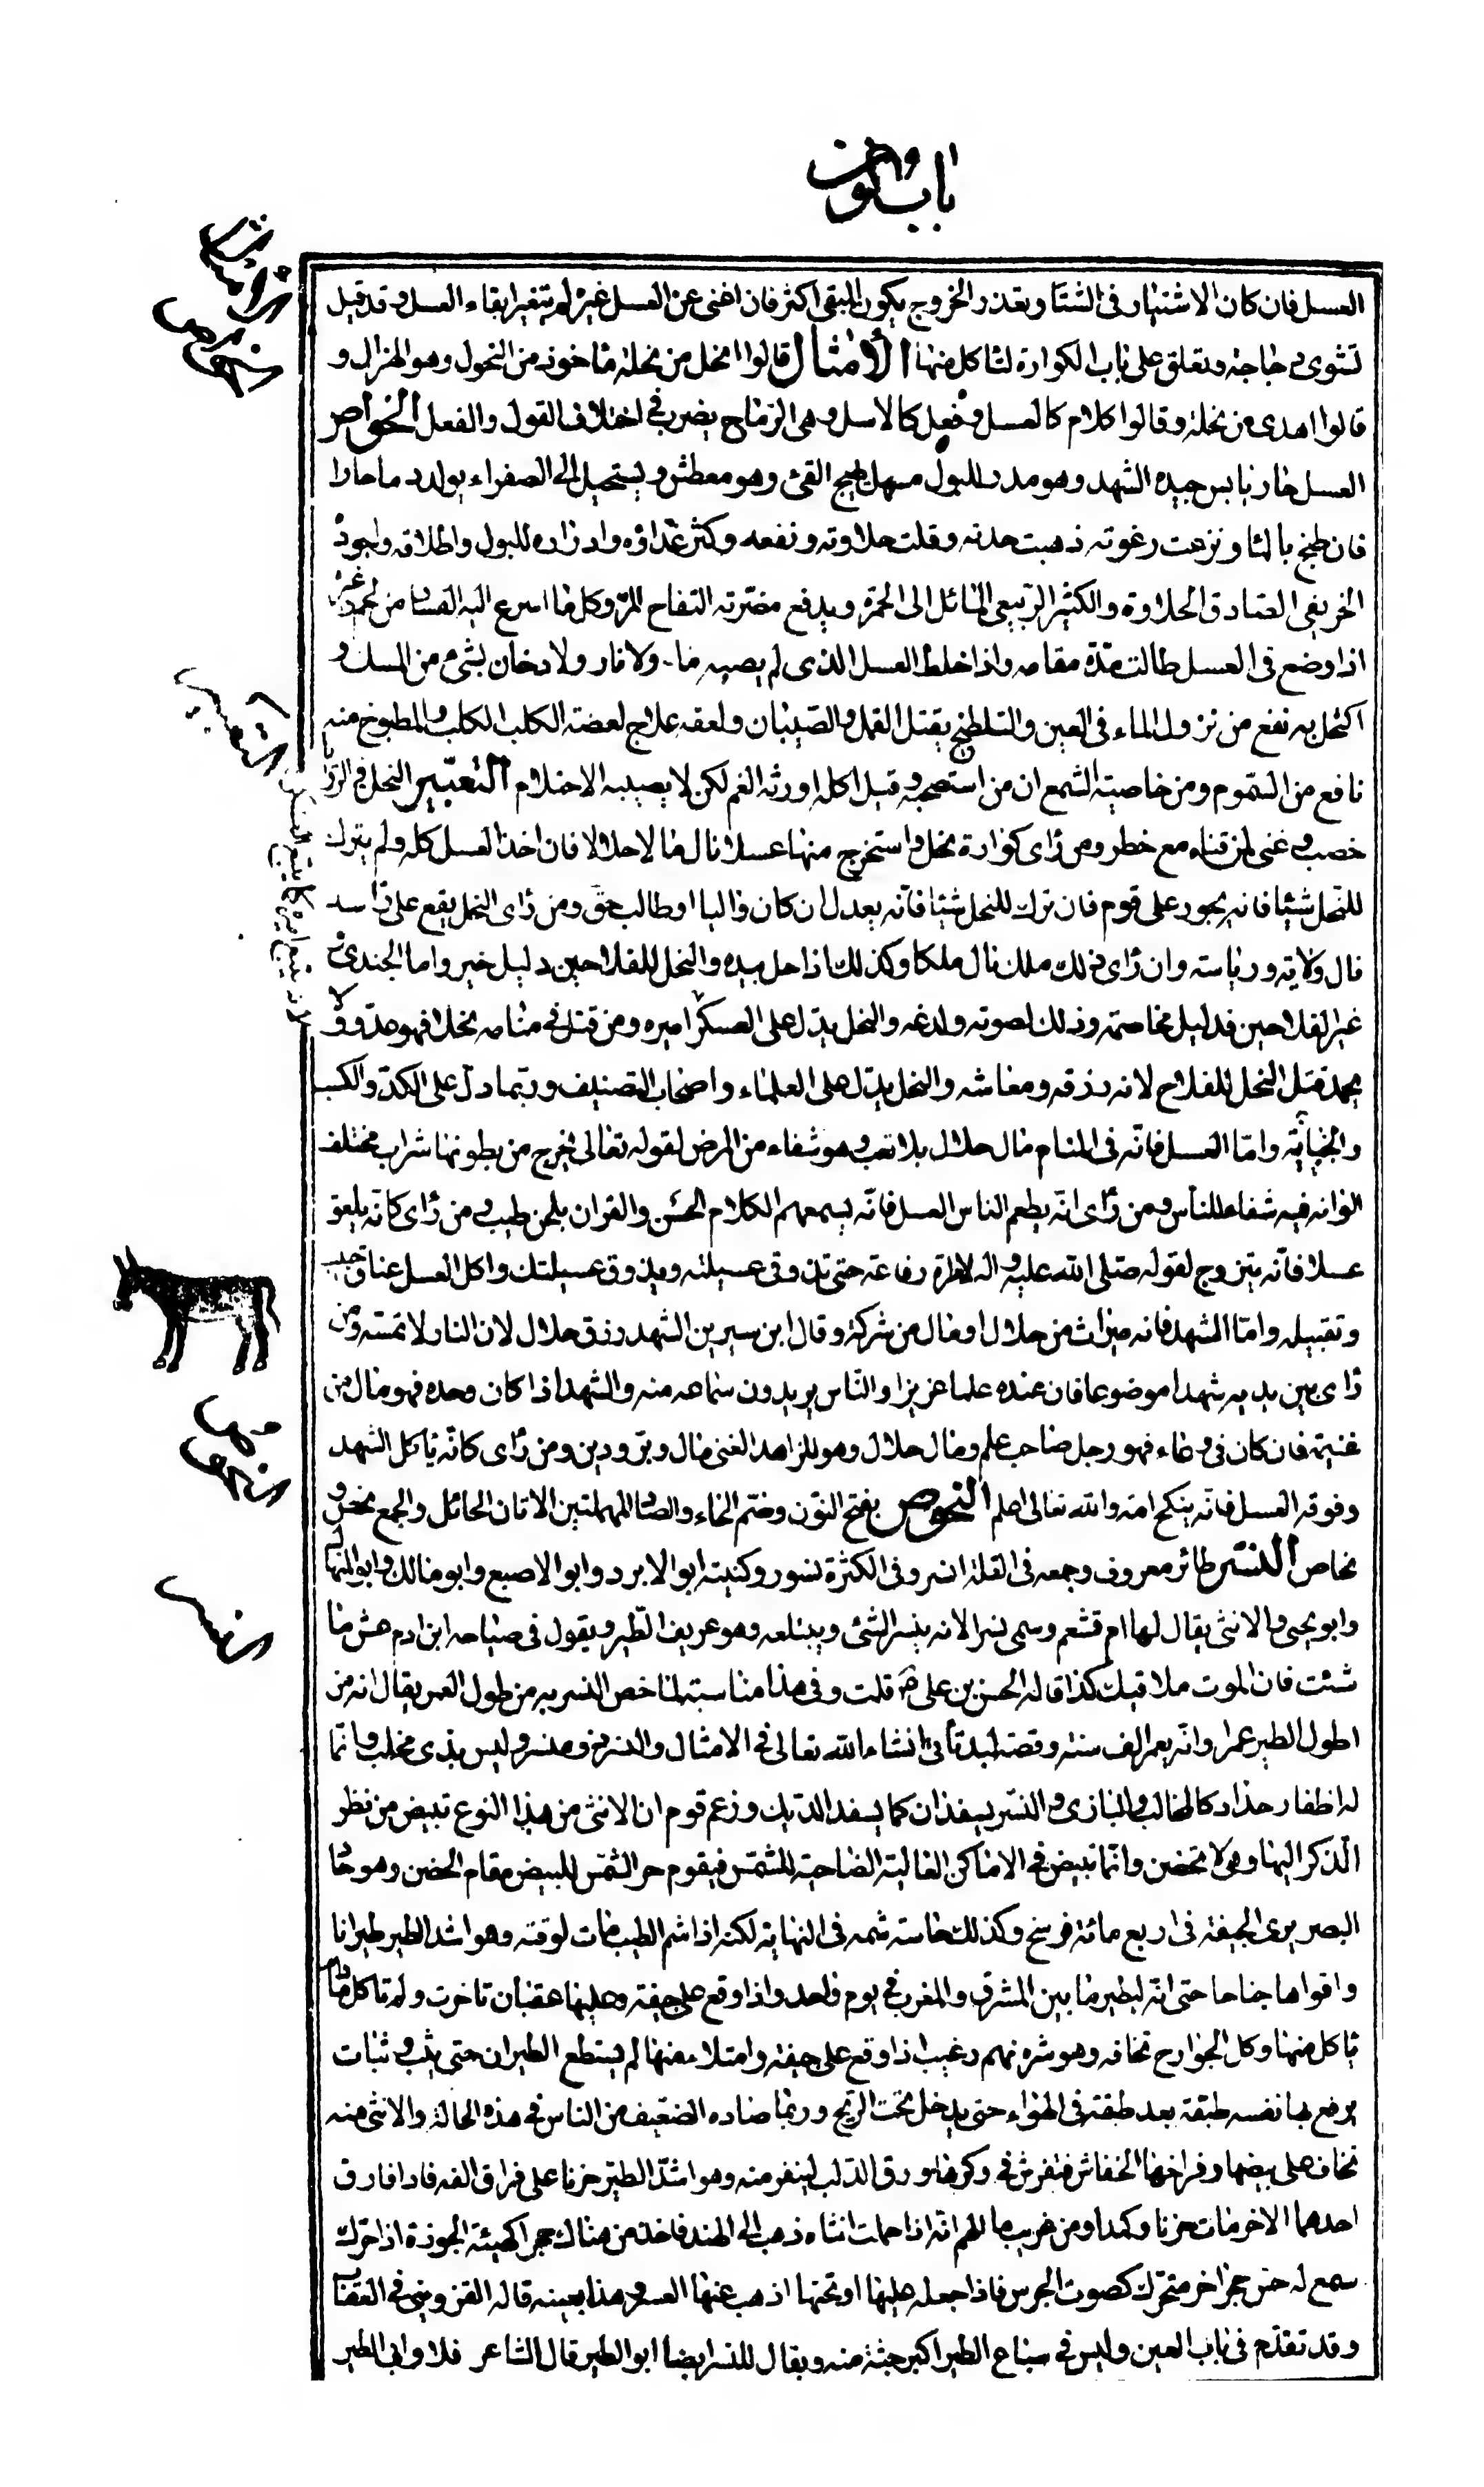 باب النون
العسل فان كان الاشتيار فى الشتا و تعذر الخروج يكون المبقى اكثر فان اغنى عن العسل غيره لم يتغير ابقاء العسل و قد قيل
تشوى دجاجة و تعلق على باب الكوارة لتاكل منها الأمثال قالوا انحل من نحلة ماخوذ من النحول و هو الهزال و
قالوا اهدى من نحلة و قالوا كلام كالعسل و فعل كالاسل و هى الرماح يضرب فى اختلاف القول و الفعل الخواص
العسل حار يابس جيده الشهد و هو مدر للبول مسهل يهيج القئ و هو معطش و يستحيل الى الصفراء يولد دما حارا
فان طبخ بالماء و نزعت رغوته ذهبت حدته و قلت حلاوته و نفعه و كثر غذاؤه و ادراره للبول و اطلاقه و اجوده
الخريفى الصادق الحلاوة و الكثير الربيعى المائل الى الحمرة و يدفع مضرته التفاح المز و كل ما اسرع اليه الفساد من لحم و غيره
اذا وضع فى العسل طالت مدة مقامه و اذا خلط العسل الذى لم يصبه ماء و لا نار و لا دخان بشىء من المسك و
اكتحل به نفع من نزول الماء فى العين و التلطخ به يقتل القمل و الصيبان و لعقه علاج لعضة الكلب الكلب و المطبوخ منه
نافع من السموم و من خاصية الشمع ان من استصحبه و قيل اكله اورثه الغم لكن لا يصيبه الاحتلام التعبير النحل فى الرؤيا
خصب و غنى لمن قناه مع خطر و من رأى كوارة نحل و استخرج منها عسلا نال مالا حلالا فان اخذ العسل كله و لم يترك
للنحل شيئا فانه يجور على قوم فان ترك للنحل شيئا فانه يعدل ان كان واليا او طالب حق و من رأى النحل يقع على رأسه
نال ولاية و رياسة و ان رأى ذلك ملك نال ملكا و كذلك اذا حل بيده و النحل للفلاحين دليل خير و اما الجندى و
غير الفلاحين فدليل مخاصمة و ذلك لصوته و لدغه و النحل يدل على العسكر اميره و من قتل فى منامه نحلا فهو عدو و لا
يحمد قتل النحل للفلاح لانه رزقه و معاشه و النحل يدل على العلماء و اصحاب التصنيف و ربما دل على الكد و الكسب
و الجباية و اما العسل فانه فى المنام مال حلال بلا تعب و هو شفاء من المرض لقوله تعالى يخرج من بطونها شراب مختلف
الوانه فيه شفاء للناس و من رأى انه يطعم الناس العسل فانه يسمعهم الكلام الحسن و القران بلحن طيب و من رأى كانه يلعق
عسلا فانه يتزوج لقوله صلى الله عليه و اله لامرأة رفاعة حتى تذوقى عسيلته و يذوق عسيلتك و اكل العسل عناق حبيب
و تقبيله و اما الشهد فانه ميراث من حلال او مال من شركة و قال ابن سيرين الشهد رزق حلال لان النار لا تمسه و من
رأى بين يديه شهدا موضوعا فان عنده علما عزيزا و الناس يريدون سماعه منه و الشهد اذا كان وحده فهو مال من
غنيمة فان كان فى وعاء فهو رجل صاحب علم و مال حلال و هو للزاهد الغنى مال و بر و دين و من رأى كانه ياكل الشهد
و فوقه العسل فانه ينكح امه و الله تعالى اعلم النحوص بفتح النون و ضم الحاء و الصاد المهملتين الاتان الحائل و الجمع نحص و
نحاص النسر طائر معروف و جمعه فى القلة انسر و فى الكثرة نسور و كنيته ابو الابرد و ابو الاصبع و ابو مالك و ابو المنهال
و ابو يحيى و الانثى يقال لها ام قشعم و سمى نسرا لانه ينسر الشئ و يبتلعه و هو عريف الطير و يقول فى صياحه ابن ادم عش ما
شئت فان الموت ملاقيك كذا قاله الحسن بن على ع قلت و فى هذا مناسبة لما خص النسر به من طول العمر يقال انه من
اطول الطير عمرا و انه يعمر الف سنة و قصة لبد تأتى انشاء الله تعالى فى الامثال و النسر ذو منسر و ليس بذى مخلب و انما
له اظفار حداد كالمخالب و البازى و النسر يسفدان كما يسفد الديك و زعم قوم ان الانثى من هذا النوع تبيض من نظر
الذكر اليها و هى لا تحضن و انما تبيض فى الاماكن العالية الضاحية للشمس فيقوم حر الشمس للبيض مقام الحضن و هو حاد
البصر يرى الجيفة فى اربع مائة فرسخ و كذلك حاسة شمه فى النهاية لكنه اذا شم الطيب مات لوقته و هو اشد الطير طيرانا
و اقواها جناحا حتى انه ليطير ما بين المشرق و المغرب فى يوم واحد و اذا وقع على جيفة و عليها عقبان تاخرت و لم تاكل ما دام
ياكل منها و كل الجوارح تخافه و هو شره نهم رغيب اذا وقع على جيفة و امتلاء منها لم يستطع الطيران حتى يثب و ثبات
يرفع بها نفسه طبقة بعد طبقة فى الهواء حتى يدخل تحت الريح و ربما صاده الضعيف من الناس فى هذه الحالة و الانثى منه
تخاف على بيضها و فراخها الخفاش فتفرش فى وكرها ورق الدلب لينفر منه و هو اشد الطير حزنا على فراق الفه فاذا فارق
احدهما الاخر مات حزنا و كمدا و من غريب ما الهم انه اذا حملت انثاه ذهب الى الهند فاخذ من هناك حجرا كهيئة الجوزة اذا حرك
سمع له حس حجر اخر متحرك كصوت الجرس فاذا جعله عليها او تحتها اذهب عنها العسر و هذا بعينه قاله القزوينى فى العقاب
و قد تقدم فى باب العين و ليس فى سباع الطير اكبر جثة منه و يقال للنسر ايضا ابو الطير قال الشاعر فلا و ابى الطير
الأمثال
الخواص
التعبير
النحوص
النسر